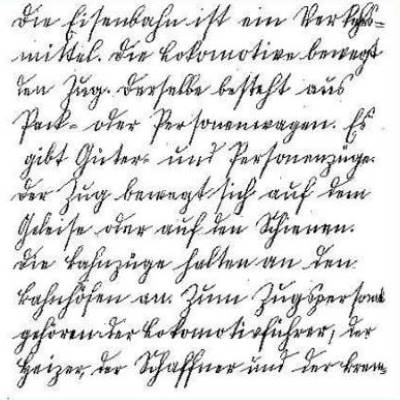 Die Eisenbahn ist ein Verkehrs-
mittel. Die Lokomotive bewegt
den Zug. Derselbe besteht aus
Pack- oder Personenwagen. Es
gibt Güter- und Personenzüge.
Der Zug bewegt sich auf dem
Geleise oder auf den Schienen.
Die Bahnzüge halten an den
Bahnhöfen an. Zum Zugspersonal
gehören der Lokomotivführer, der
Heizer, der Schaffner und der Brem-